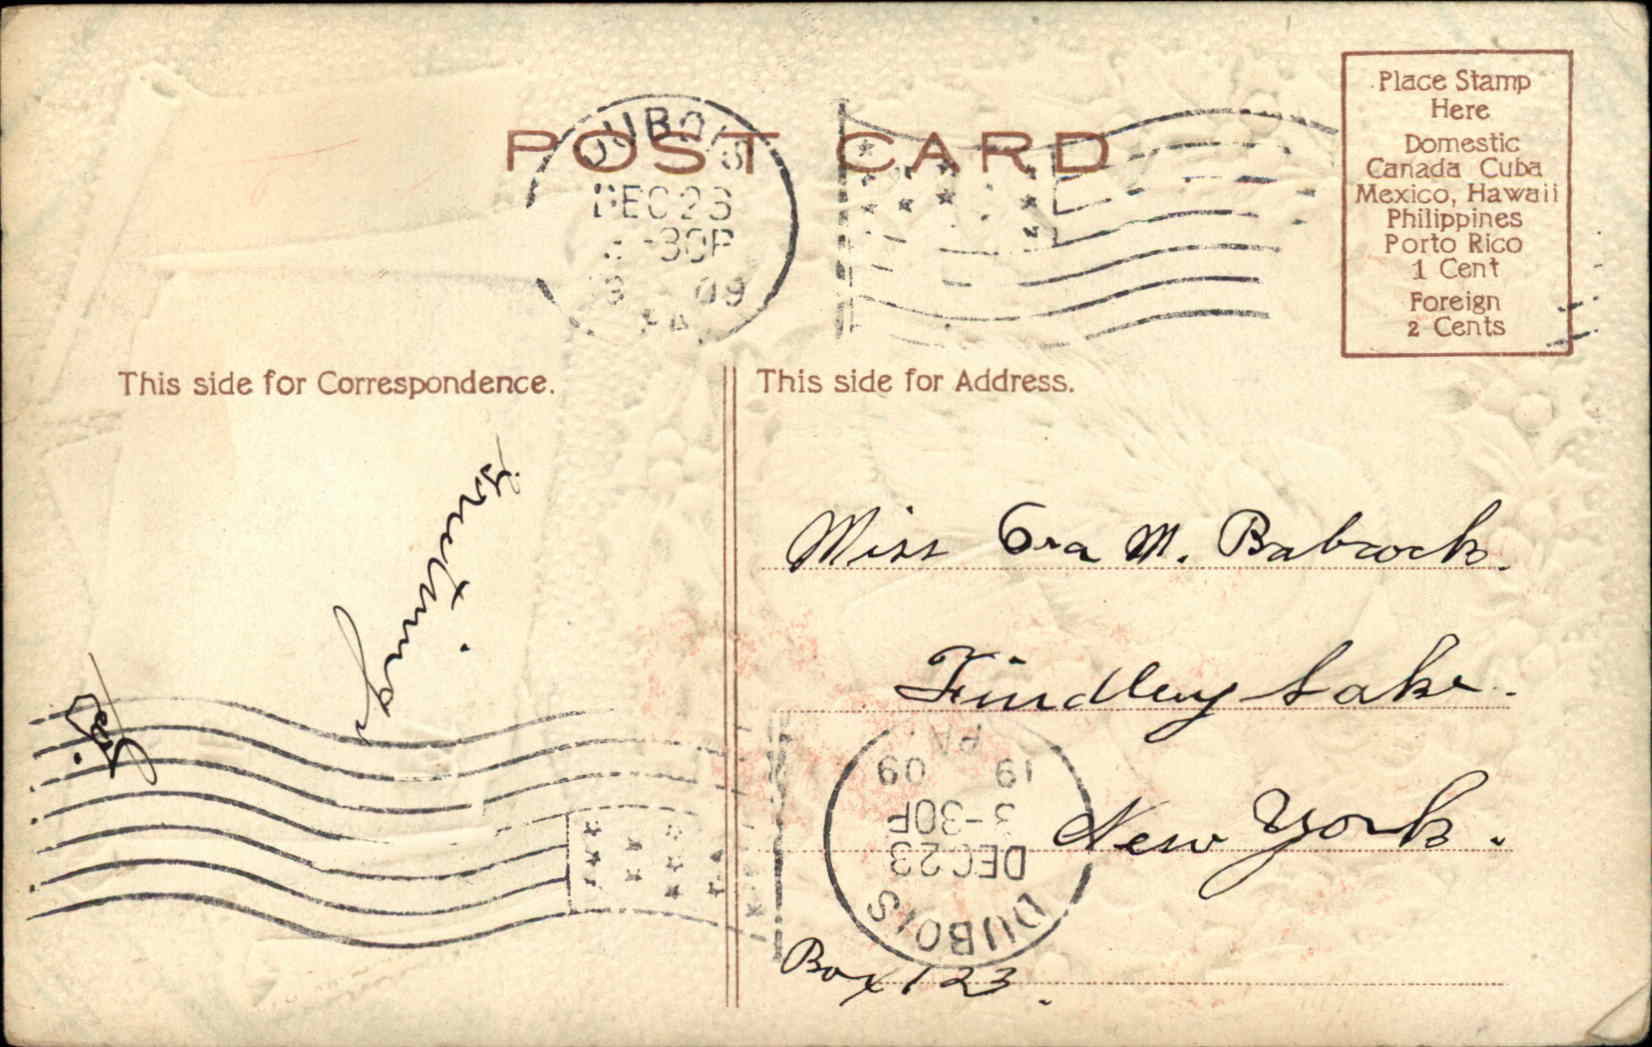 POST CARD
DUBOIS
DEC 23
-30P
09
PA
Place Stamp
Here
Domestic
Canada Cuba
Mexico, Hawaii
Philippines
Porto Rico
1 Cent
Foreign
2 Cents
This side for Correspondence.
This side for Address.
Greetings
Miss Ora M. Babcock.
Findley Lake.
New York.
Box 123.
DUBOIS
DEC 23
3-30P
19 09
PA.